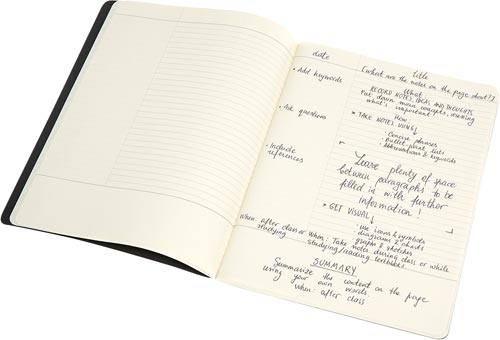 date
title
[What are the notes on the page about?]
• Add keywords
What:
RECORD NOTES, IDEAS AND THOUGHTS
Put down main concepts, meaning
what's important
• Ask questions
How:
* TAKE NOTES USING
· Concise phrases
· Bullet point lists
· Abbreviations & keywords
• Include
references
Leave plenty of space
between paragraphs to be
filled in with further
information!
* GET VISUAL
· Use icons & symbols
diagrams & charts
graphs & sketches
When: after class or
studying
When: Take notes during class or while
studying/reading textbooks.
SUMMARY
Summarize the content on the page
using your own words.
when: after class